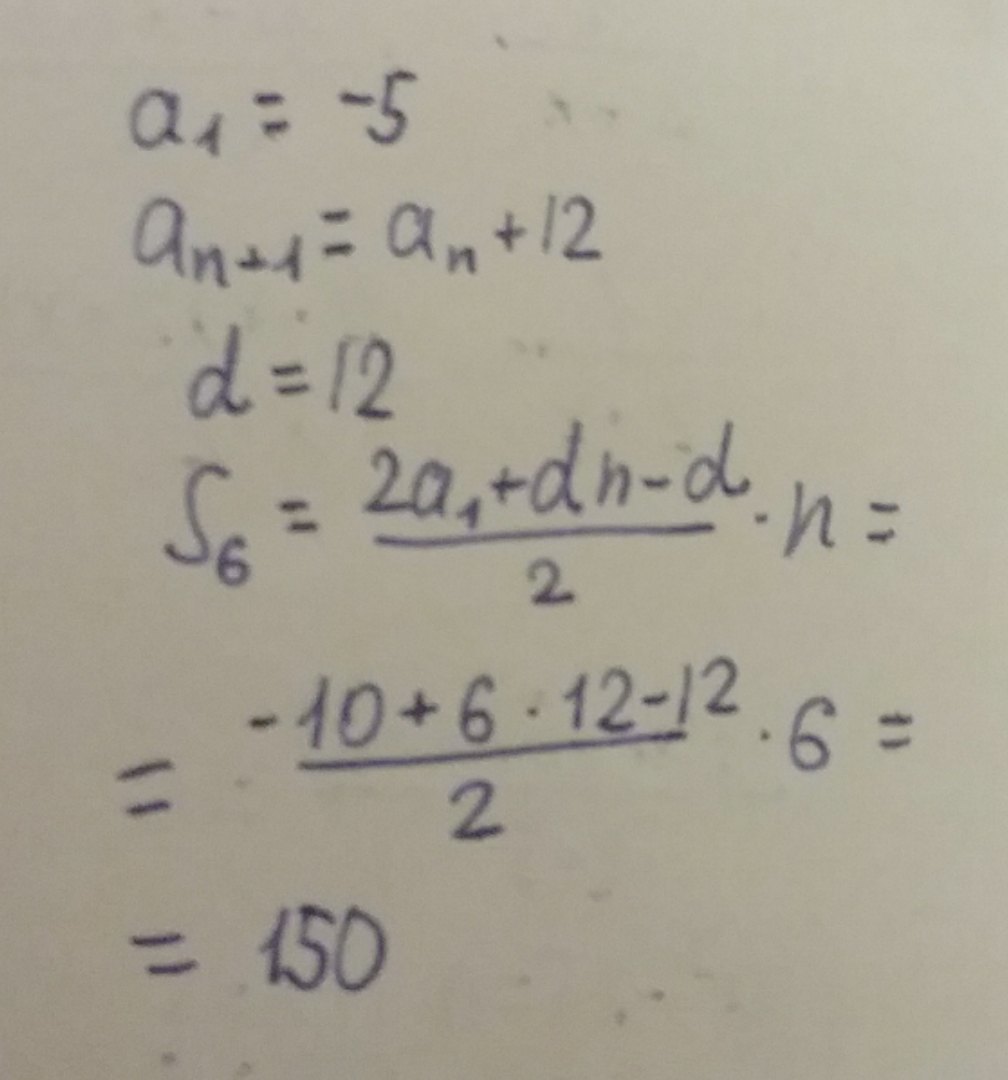 a₁ = -5
aₙ₊₁ = aₙ + 12
d = 12
S₆ = (2a₁ + dn - d)/2 · n =
= (-10 + 6 · 12 - 12)/2 · 6 =
= 150